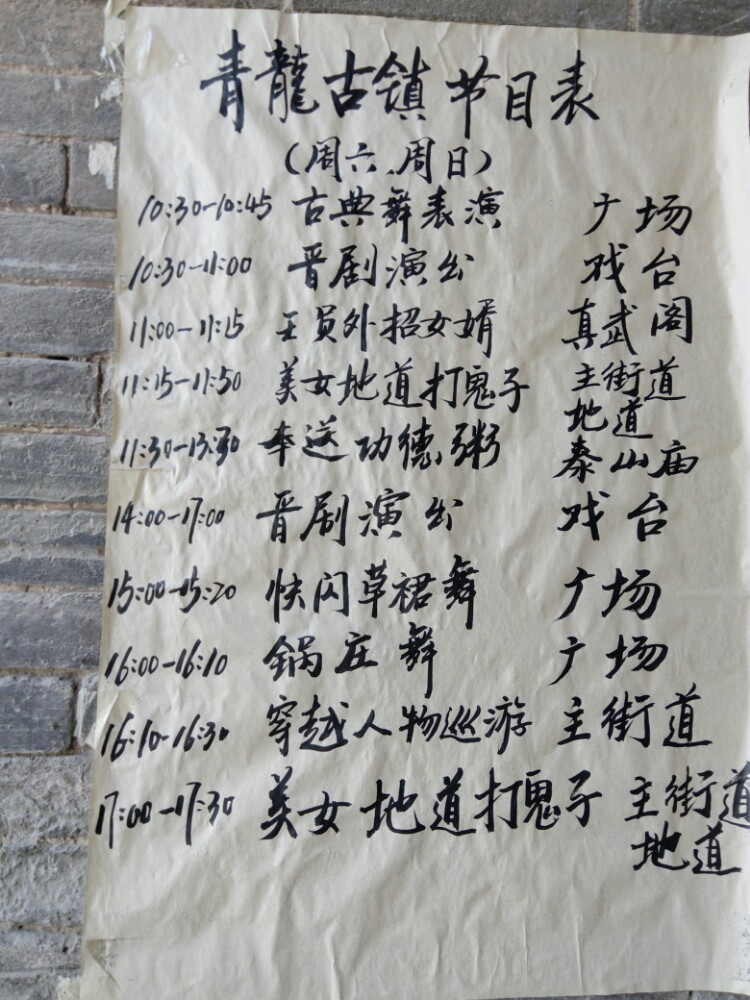 青龍古镇节目表
(周六、周日)
10:30-10:45 古典舞表演 广场
10:30-11:00 晋剧演出 戏台
11:00-11:15 王员外招女婿 真武阁
11:15-11:50 美女地道打鬼子 主街道
地道
11:30-13:30 奉送功德粥 泰山庙
14:00-17:00 晋剧演出 戏台
15:00-15:20 快闪草裙舞 广场
16:00-16:10 锅庄舞 广场
16:10-16:30 穿越人物巡游 主街道
17:00-17:30 美女地道打鬼子 主街道
地道